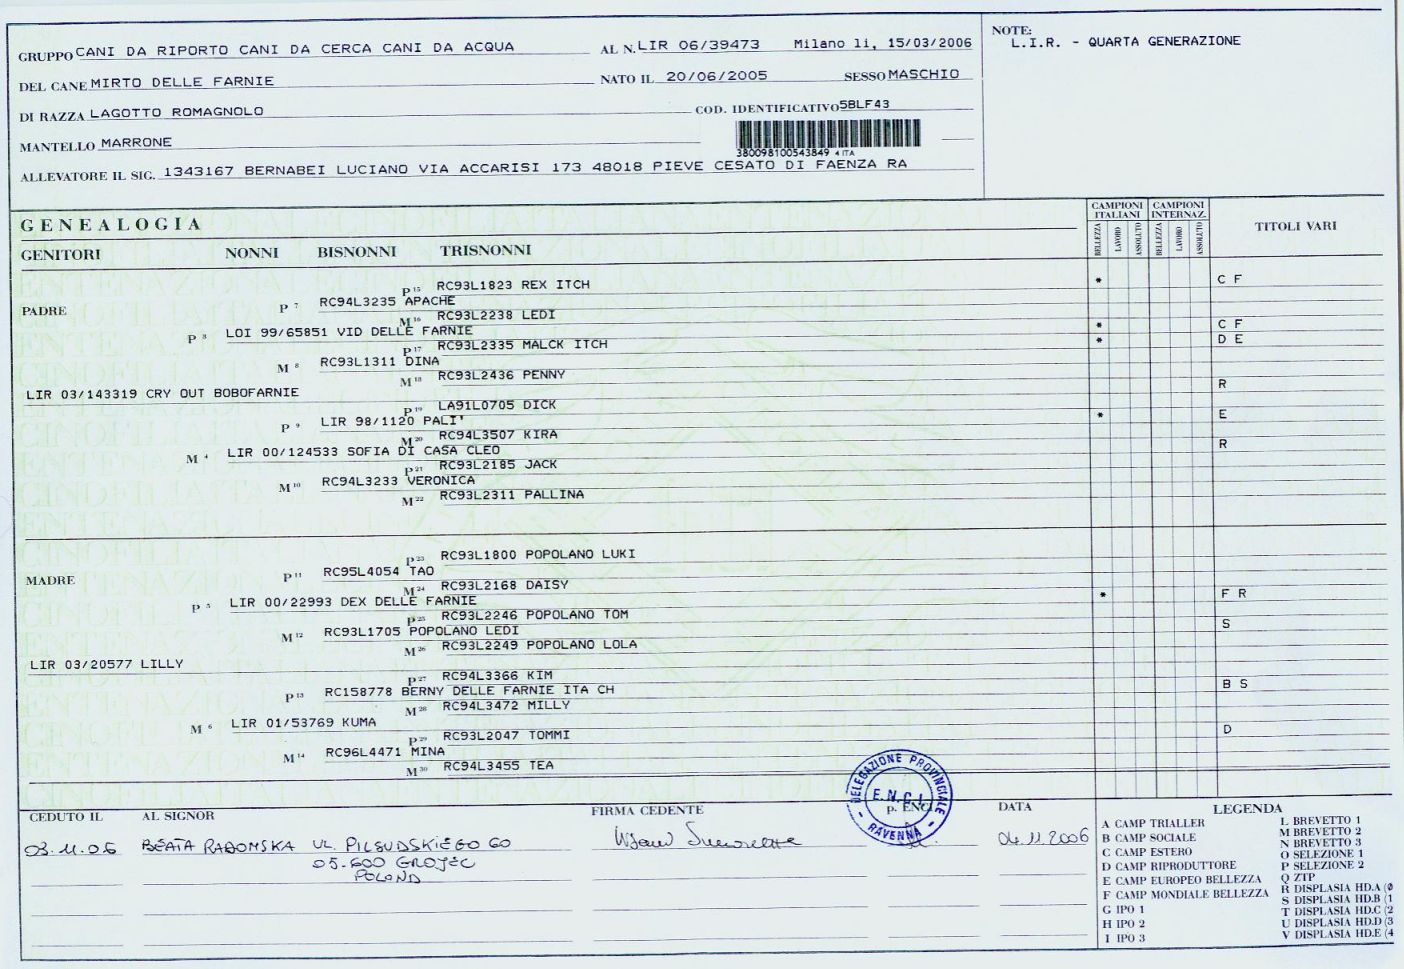 GRUPPO CANI DA RIPORTO CANI DA CERCA CANI DA ACQUA AL N. LIR 06/39473 Milano li, 15/03/2006
DEL CANE MIRTO DELLE FARNIE NATO IL 20/06/2005 SESSO MASCHIO
DI RAZZA LAGOTTO ROMAGNOLO COD. IDENTIFICATIVO 5BLF43
MANTELLO MARRONE
380098100543849 4 ITA
ALLEVATORE IL SIG. 1343167 BERNABEI LUCIANO VIA ACCARISI 173 48018 PIEVE CESATO DI FAENZA RA
NOTE:
L.I.R. - QUARTA GENERAZIONE
GENEALOGIA
GENITORI NONNI BISNONNI TRISNONNI
CAMPIONI ITALIANI CAMPIONI INTERNAZ. TITOLI VARI
BELLEZZA LAVORO ASSOLUTO BELLEZZA LAVORO ASSOLUTO
P 15 RC93L1823 REX ITCH * C F
P 7 RC94L3235 APACHE
PADRE
M 16 RC93L2238 LEDI
P 3 LOI 99/65851 VID DELLE FARNIE * C F
P 17 RC93L2335 MALCK ITCH * D E
M 8 RC93L1311 DINA
M 18 RC93L2436 PENNY
R
LIR 03/143319 CRY OUT BOBOFARNIE
P 19 LA91L0705 DICK
P 9 LIR 98/1120 PALI' * E
M 20 RC94L3507 KIRA
M 4 LIR 00/124533 SOFIA DI CASA CLEO R
P 21 RC93L2185 JACK
M 10 RC94L3233 VERONICA
M 22 RC93L2311 PALLINA
P 23 RC93L1800 POPOLANO LUKI
P 11 RC95L4054 TAO
MADRE
M 24 RC93L2168 DAISY
P 5 LIR 00/22993 DEX DELLE FARNIE * F R
P 25 RC93L2246 POPOLANO TOM
M 12 RC93L1705 POPOLANO LEDI S
M 26 RC93L2249 POPOLANO LOLA
LIR 03/20577 LILLY
P 27 RC94L3366 KIM
P 13 RC158778 BERNY DELLE FARNIE ITA CH B S
M 28 RC94L3472 MILLY
M 6 LIR 01/53769 KUMA
P 29 RC93L2047 TOMMI D
M 14 RC96L4471 MINA
M 30 RC94L3455 TEA
DELEGAZIONE PROVINCIALE
E.N.C.I.
- RAVENNA -
CEDUTO IL AL SIGNOR FIRMA CEDENTE p. ENCI DATA
03.11.06 BEATA RADOMSKA UL. PILSUDSKIEGO 60 04.11.2006
05.600 GROJEC
POLAND
LEGENDA
A CAMP TRIALLER
B CAMP SOCIALE
C CAMP ESTERO
D CAMP RIPRODUTTORE
E CAMP EUROPEO BELLEZZA
F CAMP MONDIALE BELLEZZA
G IPO 1
H IPO 2
I IPO 3
L BREVETTO 1
M BREVETTO 2
N BREVETTO 3
O SELEZIONE 1
P SELEZIONE 2
Q ZTP
R DISPLASIA HD.A (0
S DISPLASIA HD.B (1
T DISPLASIA HD.C (2
U DISPLASIA HD.D (3
V DISPLASIA HD.E (4